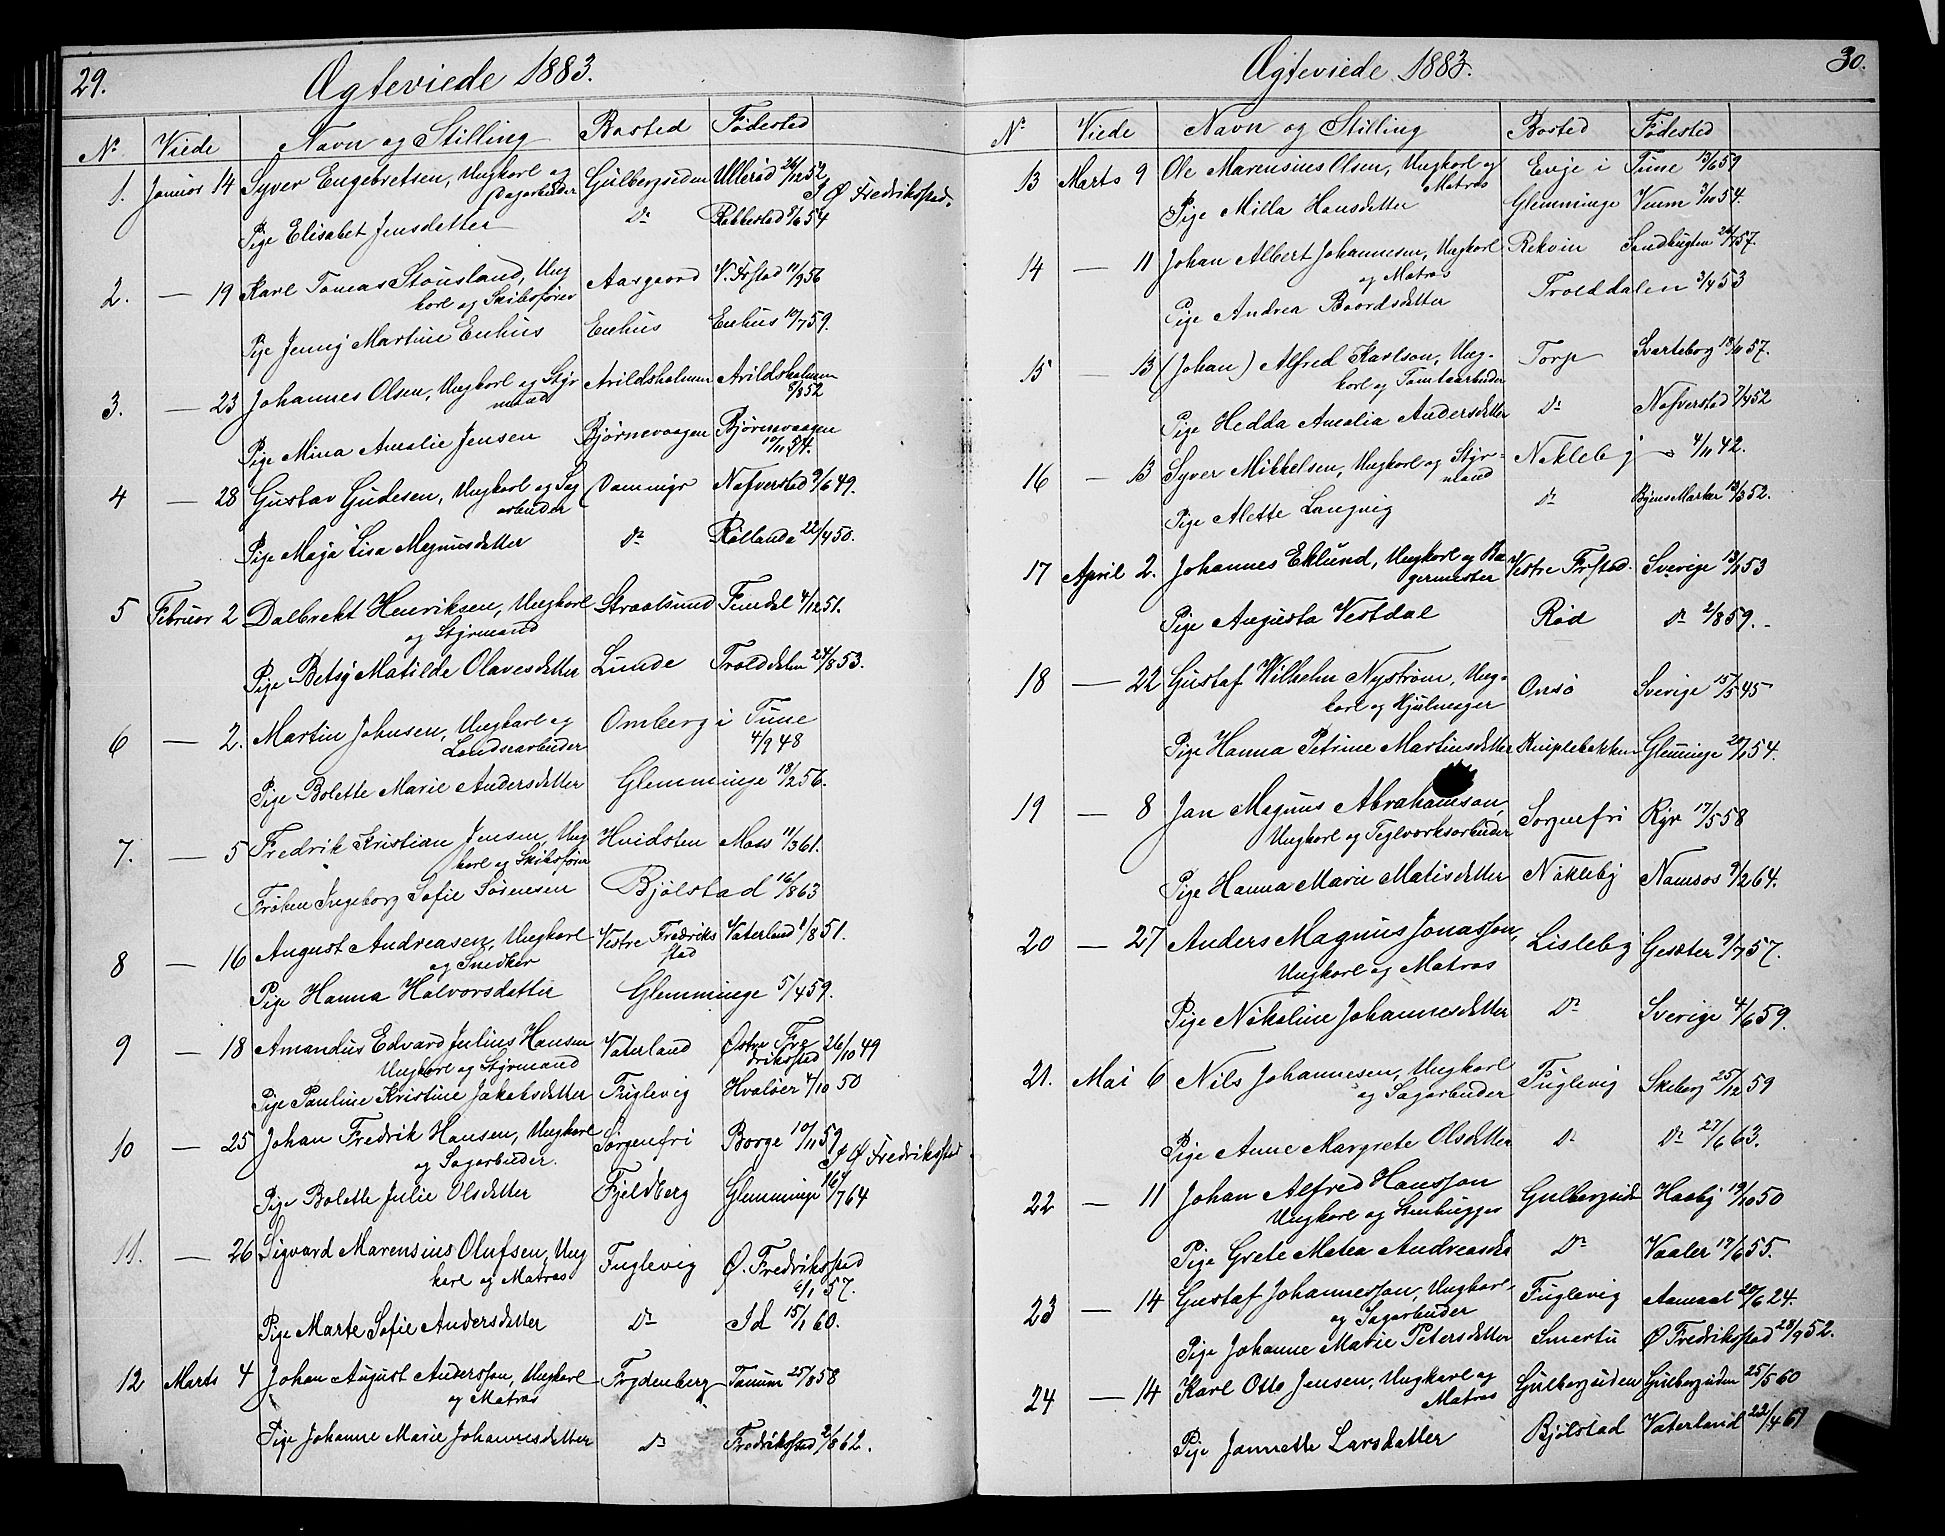 29.
Ægteviede 1883.
No Viede Navn og Stilling Bosted Fødested
1. Januar 14 Syver Engebretsen, Ungkarl og Gulbergsiden Ullerød 26/12 52
Sagarbeider I Ø Fredrikstad.
Pige Elisabet Jensdatter Do Rabbestad 8/6 54
2. — 19 Karl Tomas Stousland, Ung Aasgaard V. Frstad 11/9 56
karl og Skibsfører
Pige Jenny Martine Enhus Enhus Enhus 10/7 59.
3. — 23 Johannes Olsen, Ungkarl og Styr Arildsholmen Arildsholmen
mand 8/8 52
Pige Mina Amalie Jensen Bjørnevaagen Bjørnevaagen
10/11 54.
4 — 28 Gustav Gudesen, Ungkarl og Sag Damningr Nafverstad 9/6 49.
arbeider
Pige Maja Lisa Magnusdatter Do Røllanda 22/4 50.
5 Februar 2 Dalbrekt Henriksen, Ungkarl Straalsund Tundal 4/12 51.
og Styrmand
Pige Betsy Matilde Olavesdatter Lunde Trolddalen 24/8 53.
6 — 2. Martin Johnsen, Ungkarl og Omberg i Tune
Landsarbeider 4/9 48
Pige Bolette Marie Andersdatter Glemminge 18/2 56.
7. — 5 Fredrik Kristian Jensen, Ung Hvidsten Moss 11/3 61.
karl og Skibsfører
Frøken Ingeborg Sofie Sørensen Bjølstad 16/8 63
8 — 16 August Andreasen, Ungkarl Vestre Fredriks Vaterland 1/8 51.
og Snedker stad
Pige Hanna Halvorsdatter Glemminge 5/4 59.
9 — 18 Amandus Edvard Julius Hansen Vaterland Østre Fre 26/10 49
Ungkarl og Styrmand drikstad
Pige Pauline Kristine Jakobsdatter Fuglevig Hvaløer 4/10 50
10 — 25 Johan Fredrik Hansen, Ungkarl Sørgenfri Borge 10/11 59
og Sagarbeider. I Ø Fredrikstad.
Pige Bolette Julie Olsdatter Fjeldberg Glemminge 16/7 64
11. — 26 Sigvard Marensius Olufsen, Ung Fuglevig Ø. Fredrikstad
karl og Matros 6/1 57.
Pige Marte Sofie Andersdatter Do Id 15/1 60.
12 Marts 4 Johan August Andersson, Ungkarl Frydenberg Tanum 25/8 58
og Matros
Pige Johanne Marie Johannesdatter Do Fredrikstad 2/8 62.
Ægteviede 1883.
30.
No Viede Navn og Stilling Bosted Fødested
13 Marts 9 Ole Marensius Olsen, Ungkarl og Evje i Tune 13/6 59
Matros
Pige Milla Hansdatter Glemminge Vuum 3/10 54.
14 — 11 Johan Albert Johannesen, Ungkarl Rekvin Sandbugten 26/1 57.
og Matros
Pige Andrea Baardsdatter Trolddalen 3/4 53
15 — 13 (Johan) Alfred Karlson, Ung- Torp Svarteborg 18/11 57.
karl og Tomtearbeider
Pige Hedda Amalia Andersdatter Do Nafverstad 7/4 52
16 — 13 Syver Mikkelsen, Ungkarl og Styr- Nøkleby 4/11 42.
mand
Pige Alette Langvig Do 13/3 52.
17 April 2. Johannes Eklund, Ungkarl og Ba Vestre Frstad. Sverige 13/1 53
germester
Pige Augusta Vestdal Rød Do 2/8 59.
18 — 22 Gustaf Wilhelm Nystrøm, Ung- Onsø Sverige 15/5 45
karl og Hjulmager
Pige Hanna Petrine Martinsdatter Kniplebakken Glemminge 20/1 54.
19 — 8 Jan Magnus Abrahamson, Sorgenfri Ryr 17/5 58
Ungkarl og Teglverksarbeider
Pige Hanna Marie Matisdatter Nøkleby Namsos 9/2 64.
20 — 27 Anders Magnus Jonasson, Lisleby Gesæter 9/7 57.
Ungkarl og Matros
Pige Nikoline Johannesdatter Do Sverige 4/6 59.
21. Mai 6 Nils Johannesen, Ungkarl Fuglevig Skeberg 25/12 59
og Sagarbeider
Pige Anne Margrete Olsdatter Do Do 27/6 63.
22 — 11 Johan Alfred Hansson Gulbergsiden Haaby 19/10 50
Ungkarl og Stenhugger
Pige Grete Matea Andreasda Do Vaaler 17/6 55.
23 — 14 Gustaf Johannesson, Ungkarl Fuglevig Aamaal 29/6 24.
og Sagarbeider
Pige Johanne Marie Petersdatter Smertu Ø Fredrikstad 28/9 52.
24 — 14 Karl Otto Jensen, Ungkarl og Gulbergsiden Gulbergsiden 25/5 60
Matros
Pige Jannette Larsdatter Bjølstad Vaterland 22/4 61